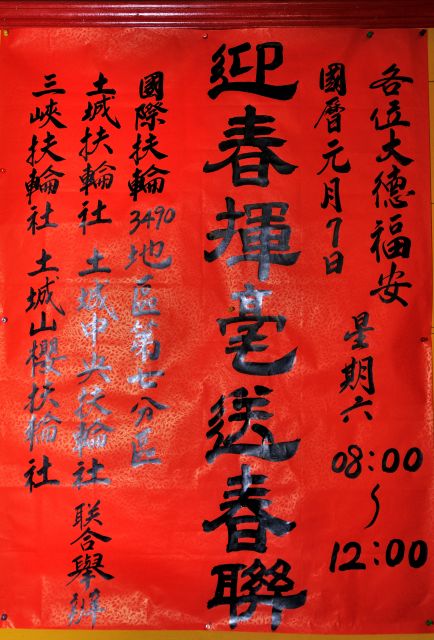 各位大德福安
國曆元月7日 星期六
08:00
~
12:00
迎春揮毫送春聯
國際扶輪3490地區第七分區
土城扶輪社 土城中央扶輪社
三峽扶輪社 土城山櫻扶輪社
聯合舉辦